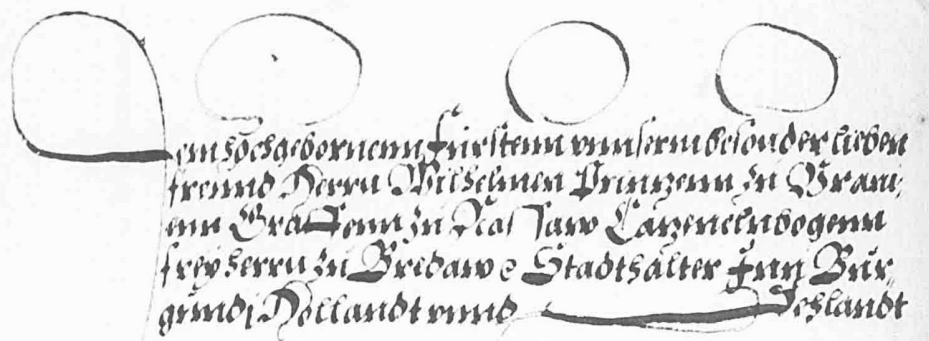 Dem hochgebornenn Fürstenn vnnserm besonder lieben
freundt Herrn Wilhelmen Prinzenn zu Vrani,
enn Graffenn zu Nassaw Catzenelnbogenn
freyherrn zu Bredaw e Stadthalter Inn Bur,
gundj Hollandt vnnd Sehlandt